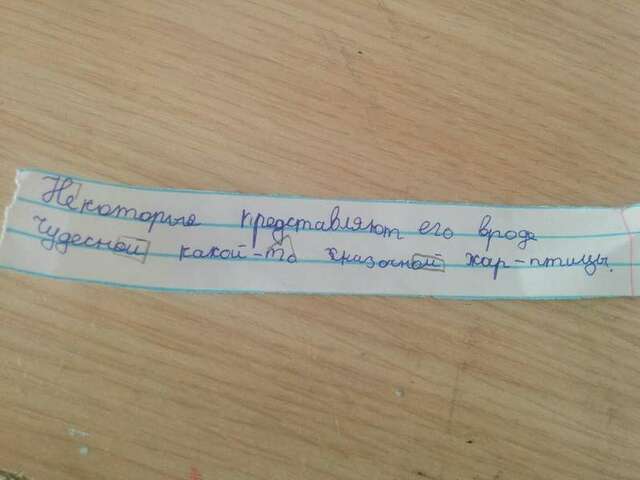 Некоторые представляют его вроде
чудесной какой-то сказочной жар-птицы.